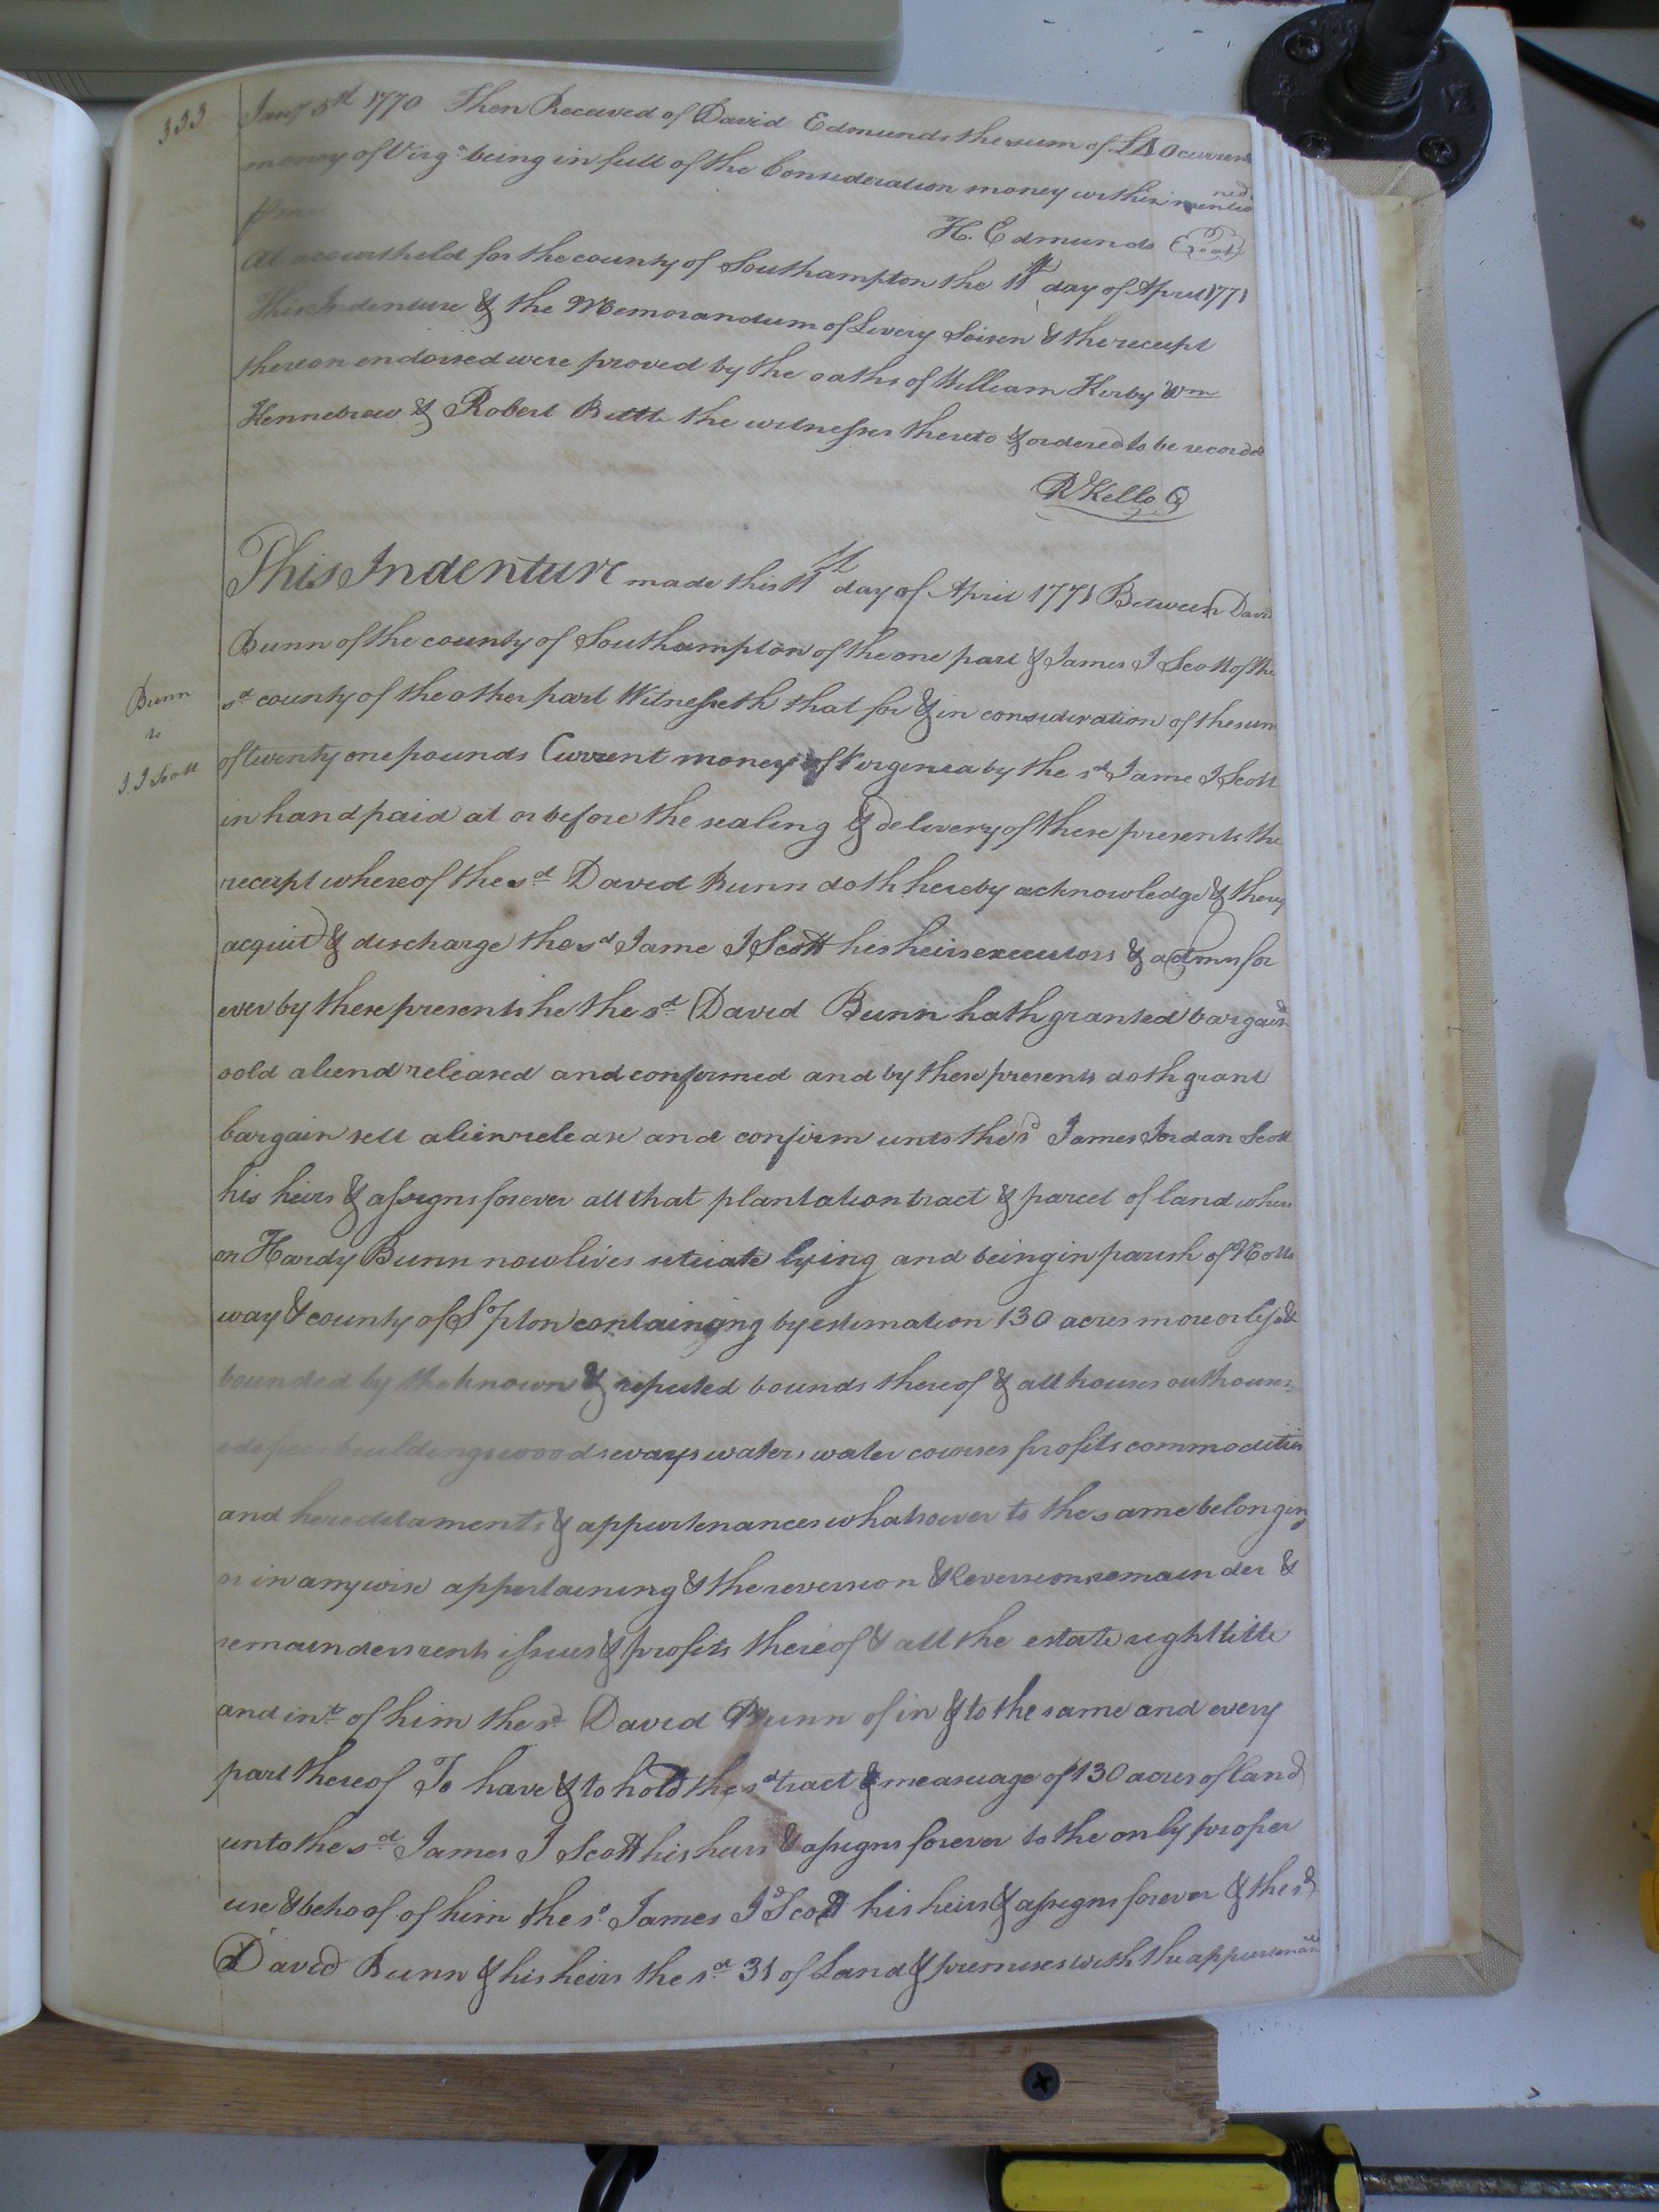 333
Jany 5th 1770 Then Received of David Edmunds the sum of current
money of Virga being in full of the Consideration money within mentioned
H. Edmunds Seal
At a court held for the county of Southampton the 11th day of April 1771
This Indenture & the Memorandum of Livery Seisen & the receipt
thereon endorsed were proved by the oaths of William Kirby Wm
Kennebrew & Robert the witnesses thereto & ordered to be recorded
R Kello C
This Indenture made this 11th day of April 1771 Between David
Bunn of the county of Southampton of the one part & James J Scott of the
Bunn
to
J. J Scott
sd county of the other part Witnesseth that for & in consideration of the sum
of twenty one pounds Current money of Virginia by the sd Jame J Scott
in hand paid at or before the sealing & delivery of these presents the
receipt whereof the sd David Bunn doth hereby acknowledge &
acquit & discharge the sd Jame J Scott his heirs executors & admn for
ever by these presents he the sd David Bunn hath granted bargaind
sold aliend released and confirmed and by these presents doth grant
bargain sell alien release and confirm unto the sd James Jordan Scott
his heirs & assigns forever all that plantation tract & parcel of land where
on Hardy Bunn now lives situate lying and being in parish of Notto
way & county of S'pton containging by estimation 130 acres more or less &
bounded by the known & reputed bounds thereof & all houses outhouses
edifices buildings woods ways waters water courses profits commodities
and hereditaments & appurtenances whatsoever to the same belonging
or in anywise appertaining & the reversion & Reversions remainder &
remainders rents issues & profits thereof & all the estate right title
and int of him the sd David Bunn of in & to the same and every
part thereof To have & to hold the sd tract & measuage of 130 acres of land
unto the sd James J Scott his heirs & assigns forever to the only proper
use & behoof of him the sd James Jd Scott his heirs & assigns forever & the sd
David Bunn & his heirs the sd 31 of Land & premises with the appurtenances